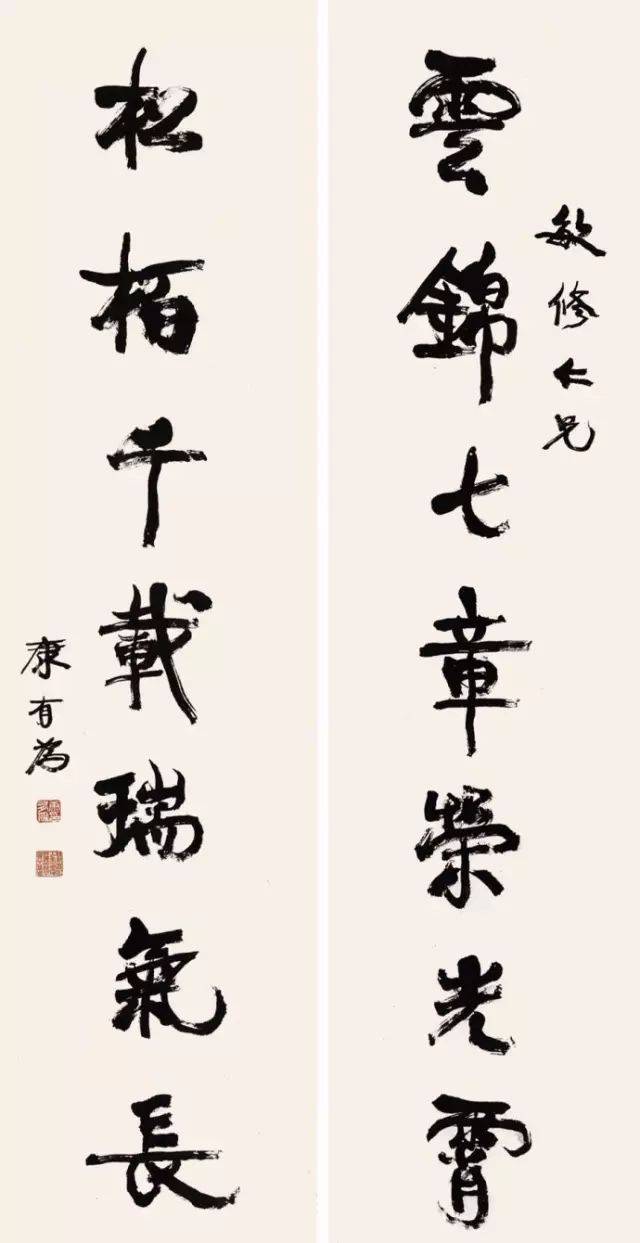 敏修仁兄
雲錦七章榮光
松柏千載瑞氣長
康有為